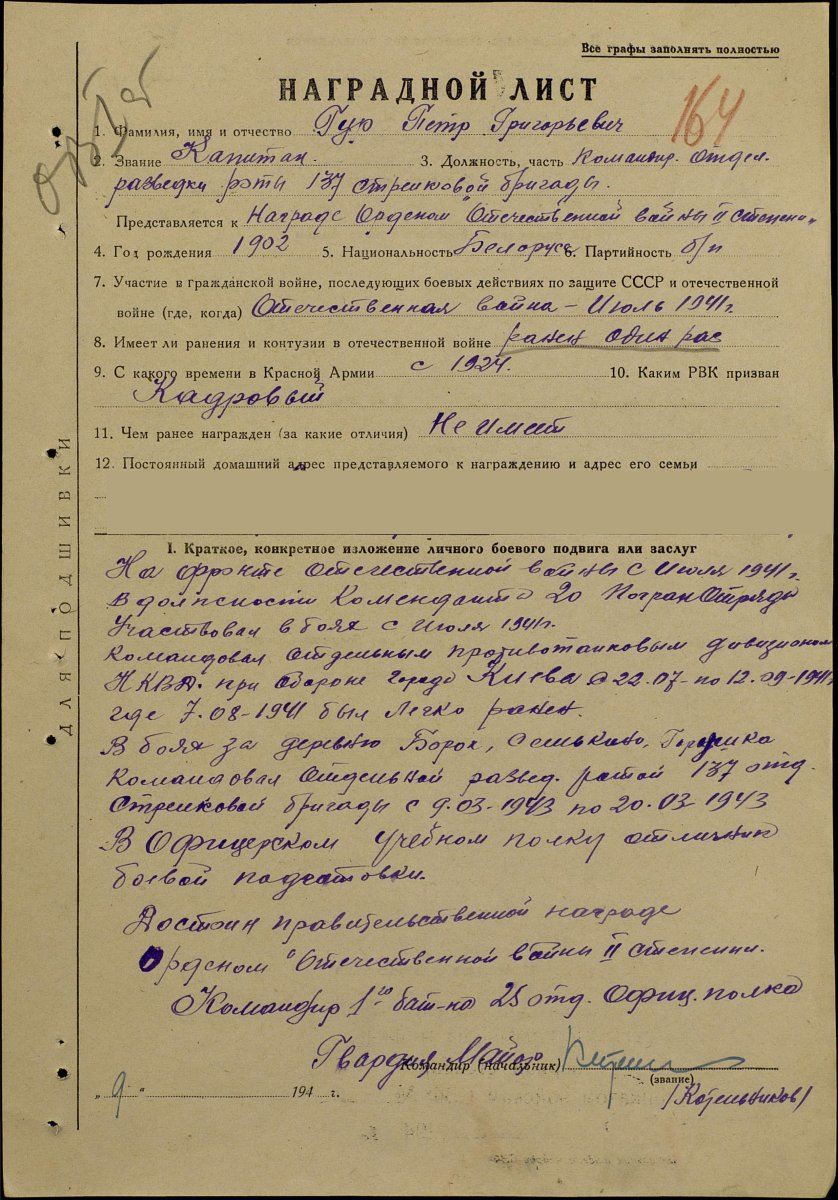 Все графы заполнять полностью
НАГРАДНОЙ ЛИСТ
164
1. Фамилия, имя и отчество Петр Григорьевич
2. Звание Капитан. 3. Должность, часть Командир отдел.
разведки роты 137 стрелковой бригады.
Представляется к Награде Орденом "Отечественной войны II степени"
4. Год рождения 1902 5. Национальность Белорус 6. Партийность б/п
7. Участие в гражданской войне, последующих боевых действиях по защите СССР и отечественной
войне (где, когда) Отечественная война – Июль 1941г.
8. Имеет ли ранения и контузии в отечественной войне ранен один рас
9. С какого времени в Красной Армии с 1924. 10. Каким РВК призван
Кадровый
11. Чем ранее награжден (за какие отличия) Не имеет
12. Постоянный домашний адрес представляемого к награждению и адрес его семьи
ДЛЯ ПОДШИВКИ
I. Краткое, конкретное изложение личного боевого подвига или заслуг
На фронте отечественной войны с Июля 1941 г.
в должности Коменданта 20 ПогранОтряда
Участвовал в боях с Июля 1941г.
Командовал отдельным противотанковым дивизионом
НКВД. при Обороне Города Киева с 22.07- по 12.09-1941г
где 7.08-1941 был Легко ранен.
В боях за деревню Борок,
Командовал Отдельной развед. ротой 137 отд.
Стрелковой бригады с 9.03-1943 по 20.03-1943
В Офицерском Учебном полку отличник
боевой подготовки.
Достоин правительственной награде
Орденом "Отечественной войны II степени.
Командир 1го бат-на 25 отд. Офиц. полка
Гвардии Майор
Командир (начальник)
(звание)
„ 9 “ 194 г.
/Котельников/